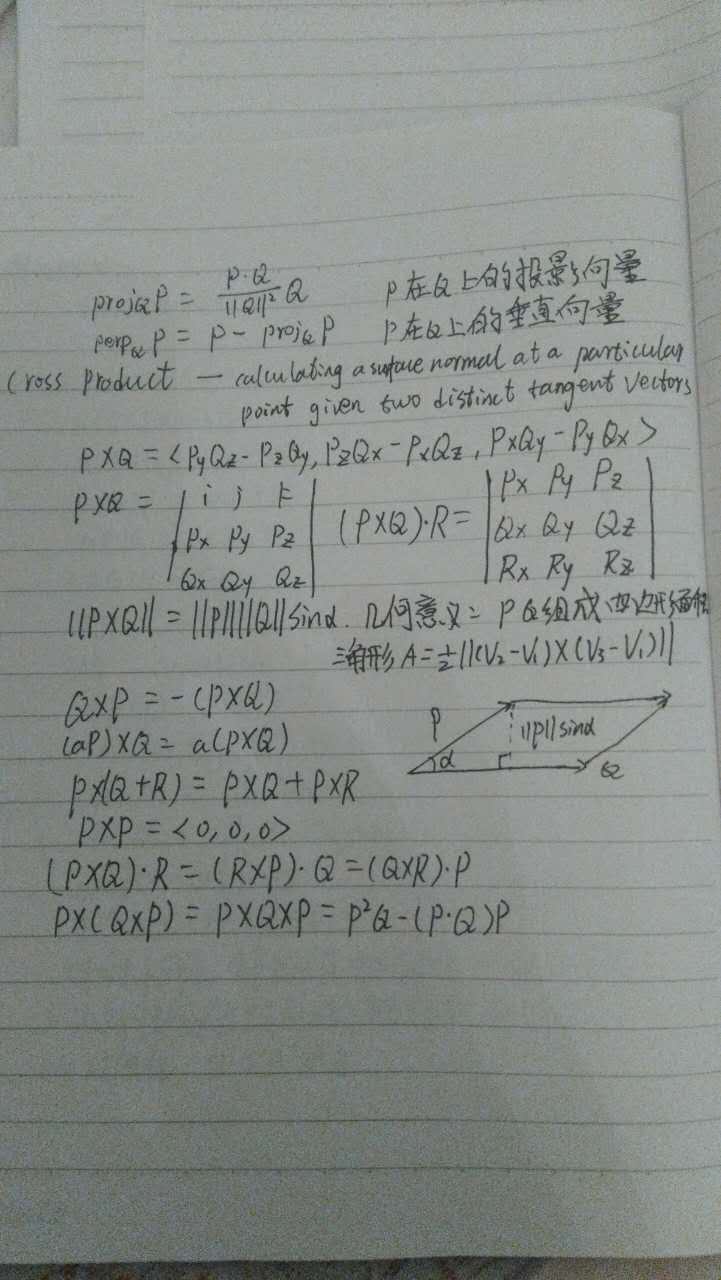 proj_Q P = P·Q / ||Q||² Q    P在Q上的投影向量
perp_Q P = P - proj_Q P    P在Q上的垂直向量
Cross Product — calculating a surface normal at a particular
point given two distinct tangent vectors
P×Q = <PyQz - PzQy, PzQx - PxQz, PxQy - PyQx>
P×Q = | i j k | (P×Q)·R = | Px Py Pz |
| Px Py Pz | | Qx Qy Qz |
| Qx Qy Qz | | Rx Ry Rz |
||P×Q|| = ||P||||Q||sinα. 几何意义: P Q组成四边形面积
三角形 A = ½||(V₂-V₁)×(V₃-V₁)||
Q×P = -(P×Q)
(aP)×Q = a(P×Q)
P×(Q+R) = P×Q + P×R
P×P = <0,0,0>
P
||P||sinα
α
Q
(P×Q)·R = (R×P)·Q = (Q×R)·P
P×(Q×P) = P×Q×P = P²Q - (P·Q)P